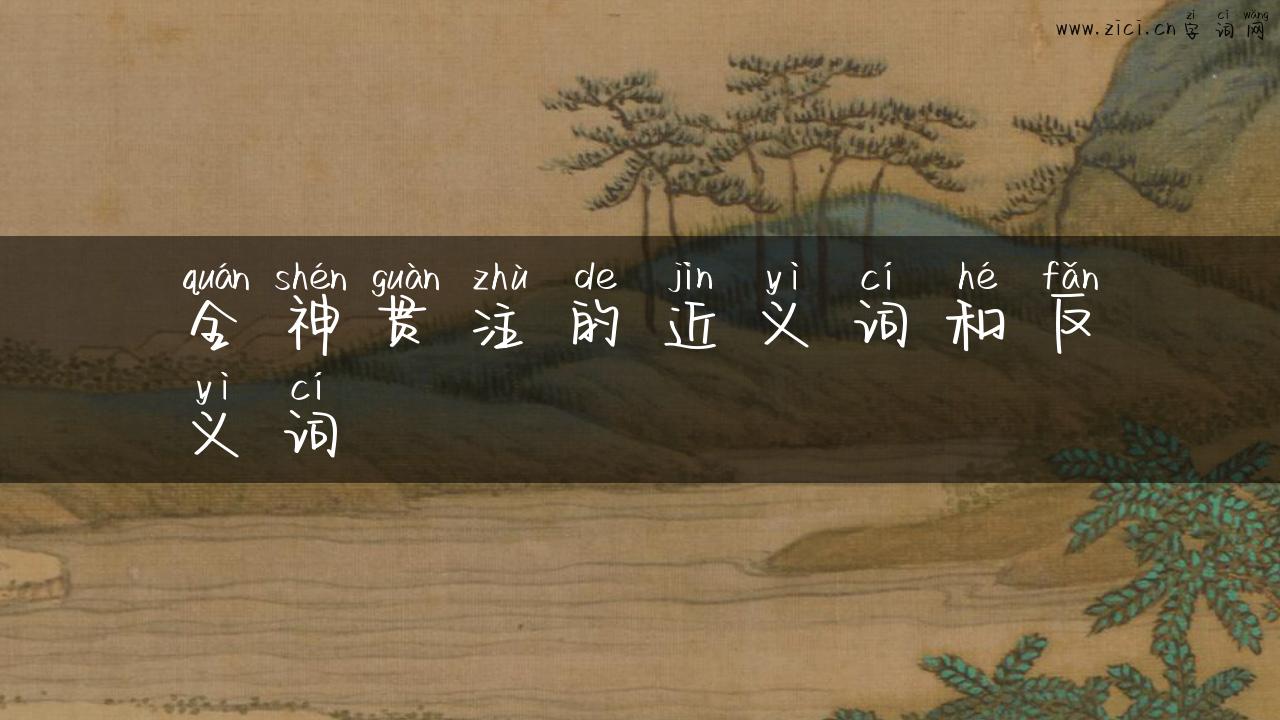 zì cí wǎng
www.zici.cn 字词网
quán shén guàn zhù de jìn yì cí hé fǎn
全神贯注的近义词和反
yì cí
义词